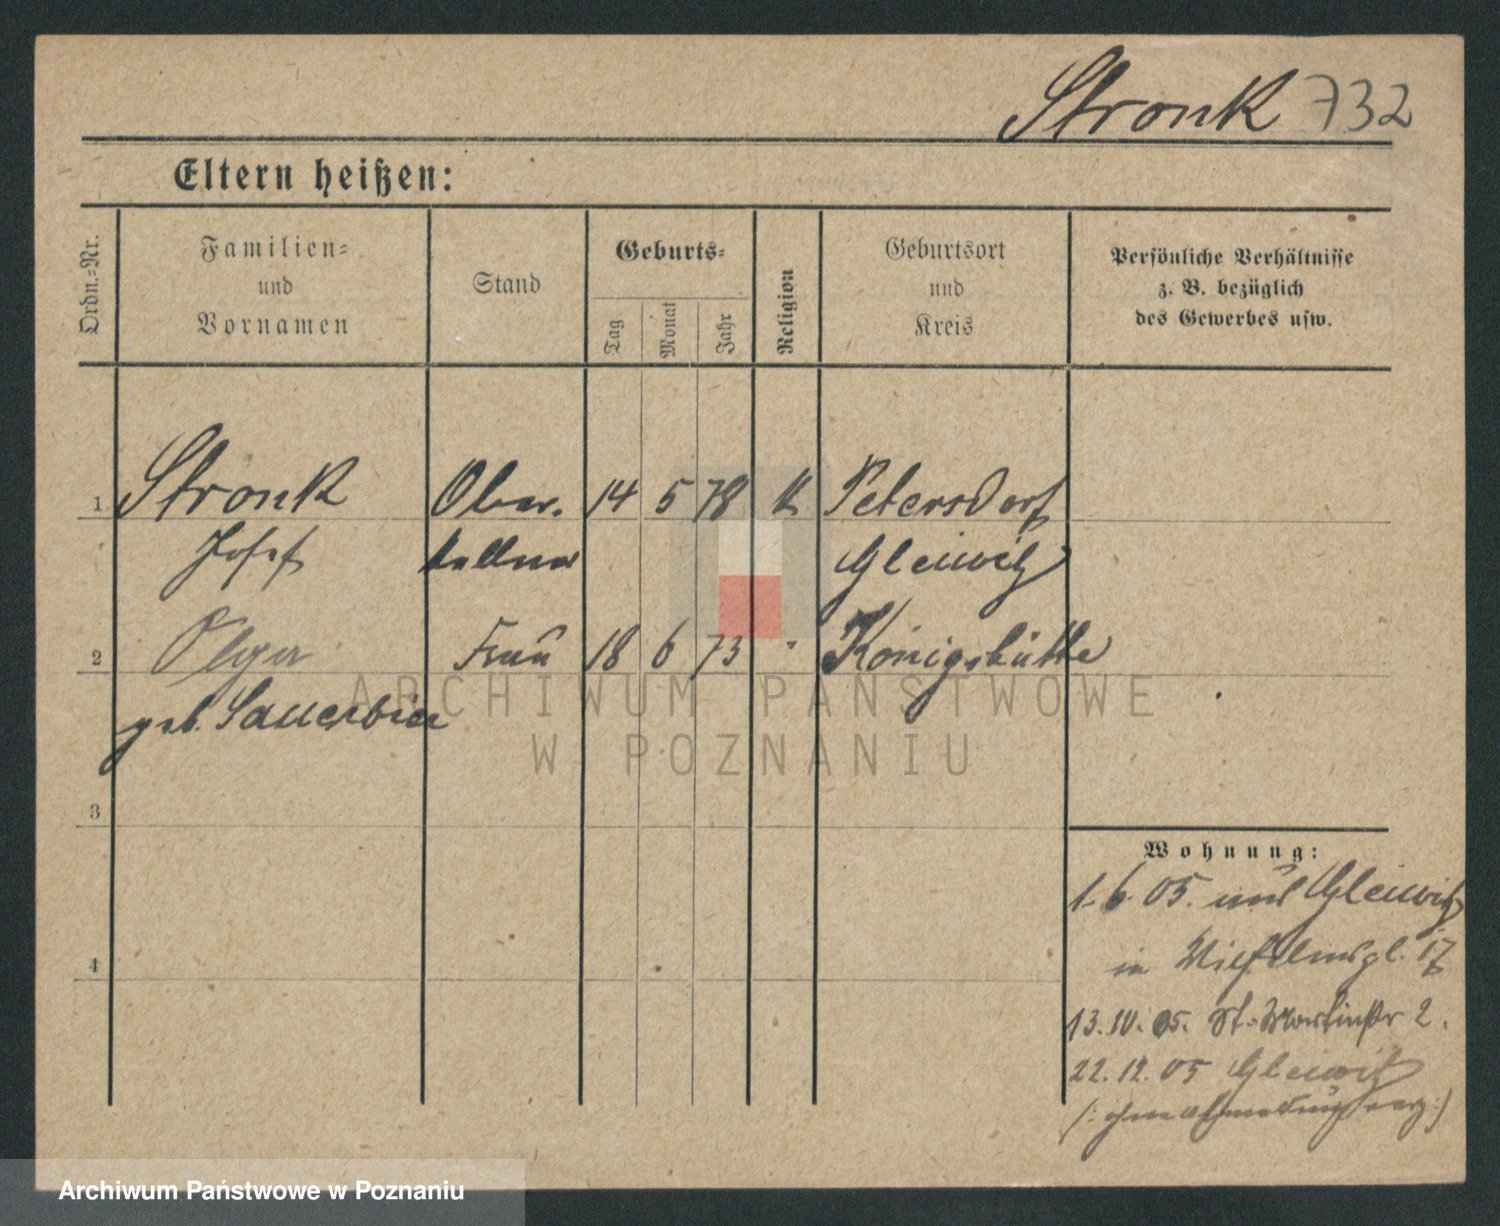 Stronk 732
Eltern heißen:
Ordn.-Nr.
Familien-
und
Vornamen
Stand
Geburts-
Tag
Monat
Jahr
Religion
Geburtsort
und
Kreis
Persönliche Verhältnisse
z. B. bezüglich
des Gewerbes usw.
1 Stronk Ober- 14 5 78 k Petersdorf
Josef kellner Gleiwitz
2 Olga Frau 18 6 73 " Königshütte
geb. Sauerbier
3
4
Wohnung:
1.6.05. aus Gleiwitz
in 17
13.10.05. St. Martinstr 2.
22.12.05 Gleiwitz
(: ohne Abmeldung :)
ARCHIWUM PAŃSTWOWE
W POZNANIU
Archiwum Państwowe w Poznaniu